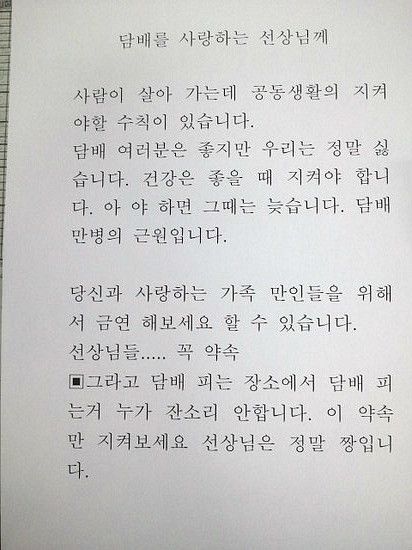 담배를 사랑하는 선상님께
사람이 살아 가는데 공동생활의 지켜
야할 수칙이 있습니다.
담배 여러분은 좋지만 우리는 정말 싫
습니다. 건강은 좋을 때 지켜야 합니
다. 아 야 하면 그때는 늦습니다. 담배
만병의 근원입니다.
당신과 사랑하는 가족 만인들을 위해
서 금연 해보세요 할 수 있습니다.
선상님들..... 꼭 약속
▣그라고 담배 피는 장소에서 담배 피
는거 누가 잔소리 안합니다. 이 약속
만 지켜보세요 선상님은 정말 짱입니
다.